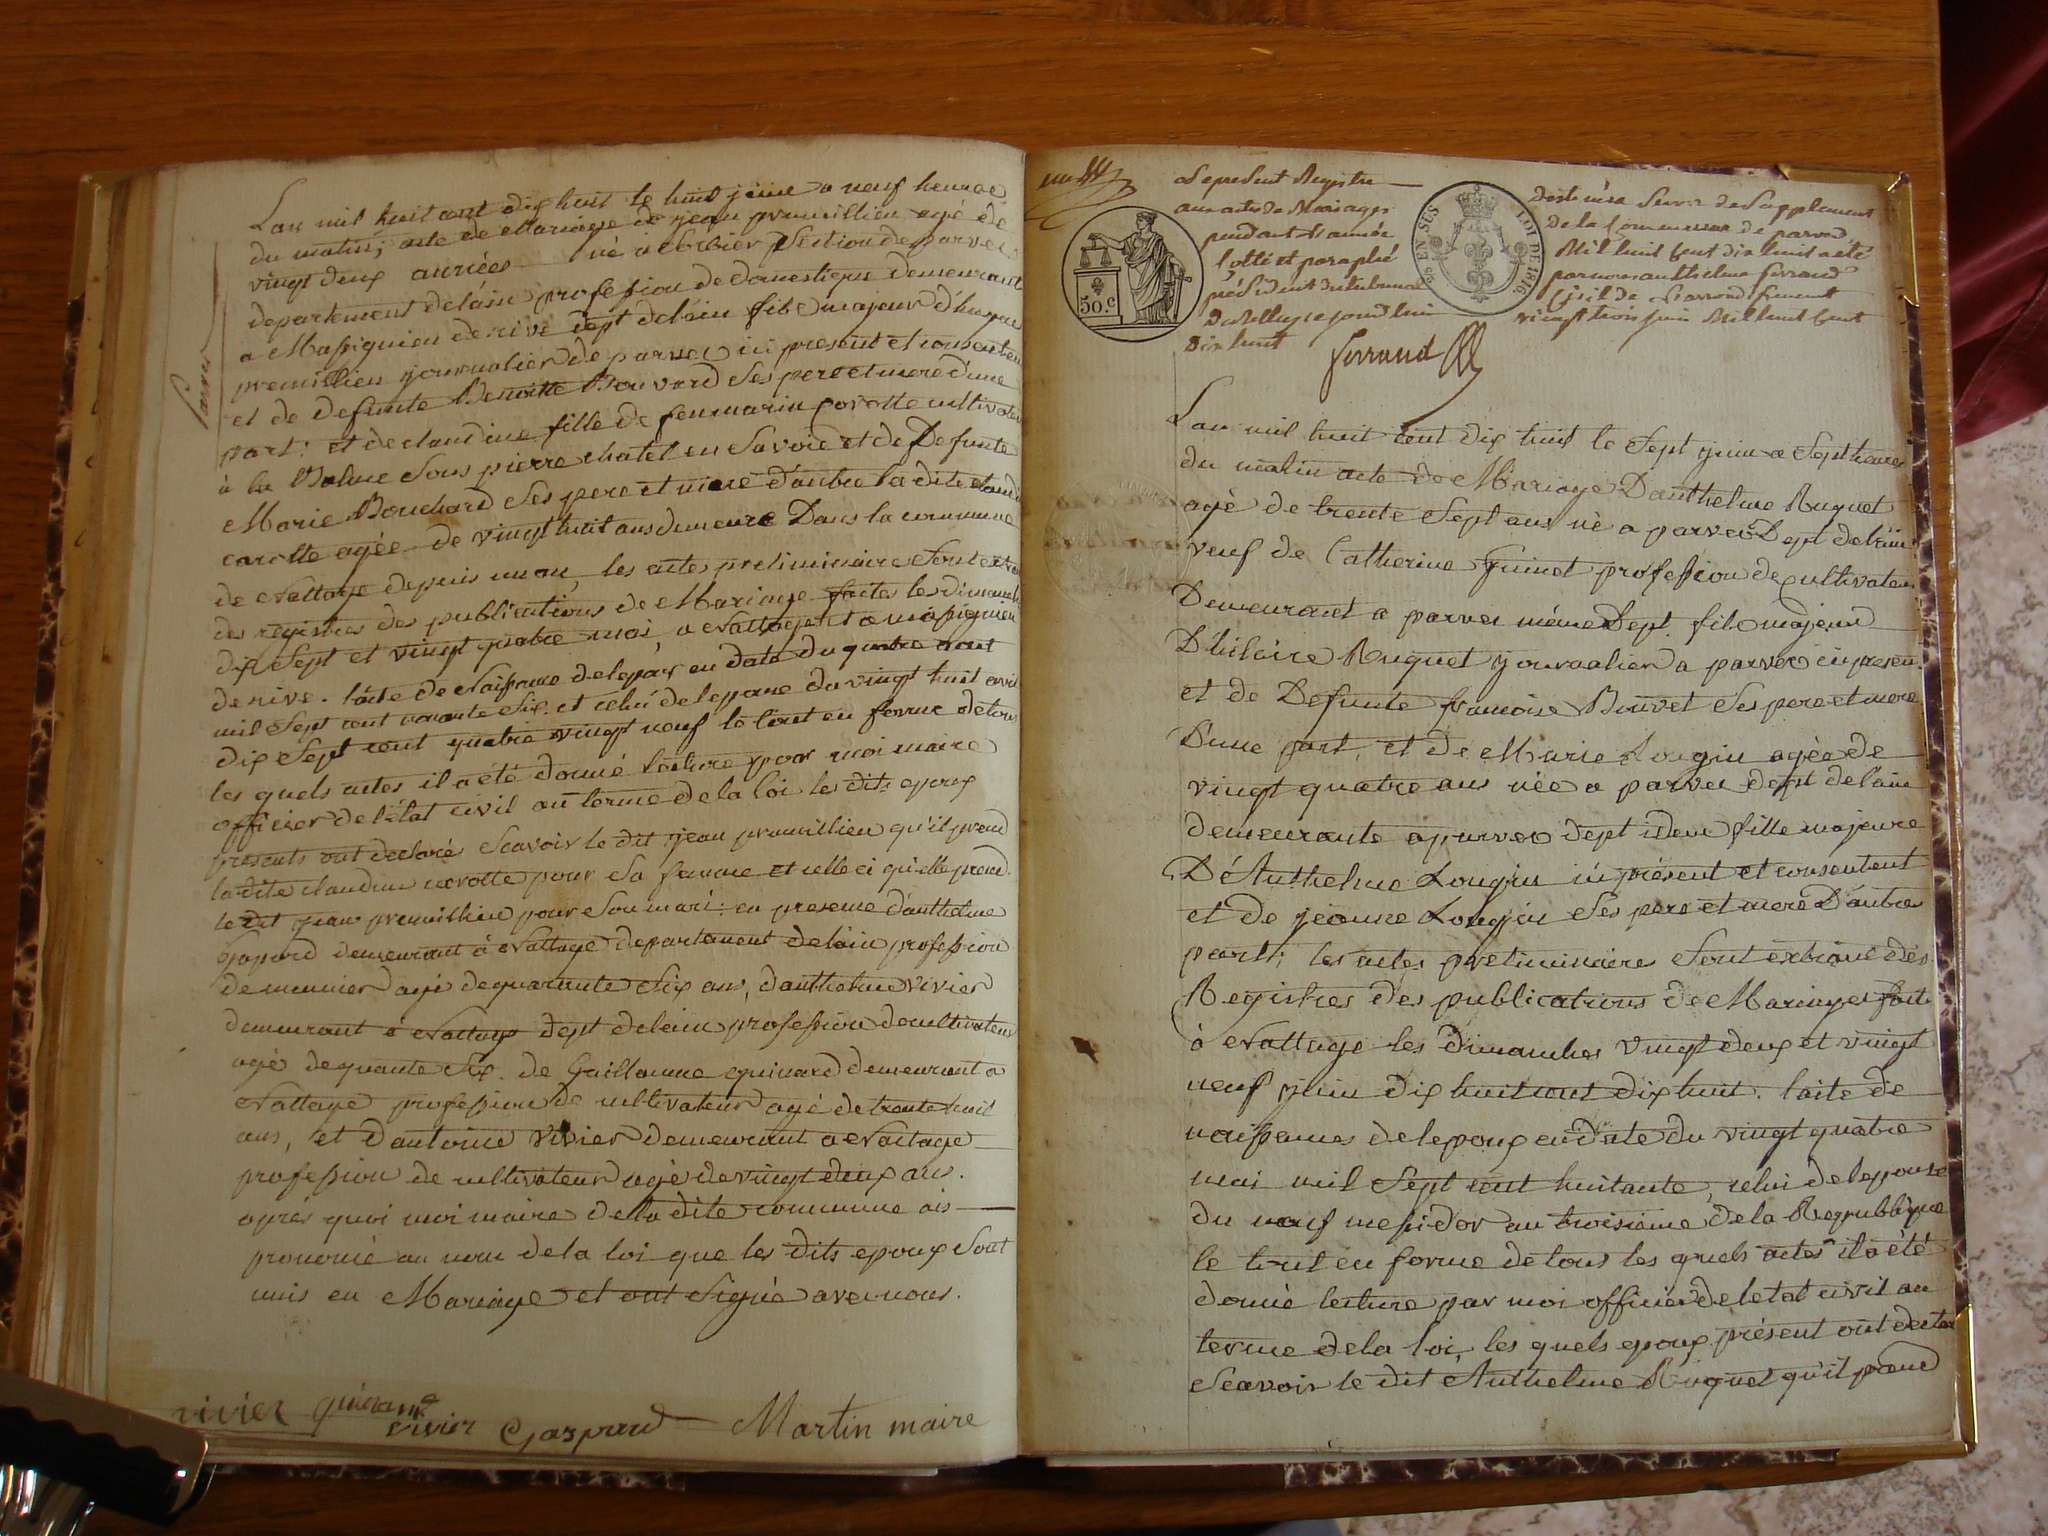 Parves
L'an mil huit cent dix huit le huit juin a neuf heures
du matin; acte de Mariage de jean premillieu agé de
vingt deux années né à Sorbier Section de parves
departement de l'ain profession de domestique demeurant
a Massignieu de rive dept de l'ain fils majeur d'hugues
premillieu journalier de parves ici present et consentent
et de defunte Benoitte Bouvard Ses pere et mere d'une
part: et de claudine fille de feu marin corotte cultivateur
à la Balme Sous pierre chatel en Savoie et de Defunte
Marie Bouchard Ses pere et mere d'autre la dite claudine
corotte agée de vingt huit ans demeure Dans la commune
de Nattage depuis un an, les actes preliminaire Sont extrait
des registres des publications de Mariage faites les dimanches
dix Sept et vingt quatre mai a Nattage et a massignieu
de rive. l'acte de Naissance de lepoux en date du quatre aout
mil Sept cent nonante Six. et celui de lepouse du vingt huit avril
dix Sept cent quatre vingt neuf le tout en forme de tous
les quels actes il a été donné lecture par moi maire
officier de l'état civil au terme de la loi les dits epoux
presents ont declaré Scavoir le dit jean premillieu qu'il prend
la dite claudine corotte pour Sa femme et celle ci qu'elle prend
le dit jean premillieu pour Son mari: en presence d'anthelme
Gaspard demeurant à Nattage departement de l'ain profession
de meunier agé de quarante Six ans, d'anthelme vivier
demeurant à Nattage dept de l'ain profession de cultivateur
agé de quante Six. de Guillaume quinard demeurant a
Nattage profession de cultivateur agé de trente huit
ans, et d'antoine vivier demeurant a Nattage
profession de cultivateur agé de vingt deux ans.
après quoi moi maire de la dite commune ais
prononcé au nom de la loi que les dits epoux Sont
unis en Mariage et ont Signé avec nous.
vivier quinard
vivier Gaspard Martin maire
Le present Registre destiné a Servir de Supplement
aux actes de Mariages de la Commune de parves
pendant l'année Mil huit Cent dix huit a été
Cotté et paraphé par nous anthelme ferrand
président du tribunal Civil de l'arrondissement
De Belley ce jourd'hui vingt trois juin Mil huit Cent
Dix huit
50.c
EN SUS LOI DE 1816
ferrand
L'an mil huit cent dix huit le Sept juin a Sept heures
du matin acte de Mariage D'anthelme Ruguet
agé de trente Sept ans né a parves Dept de l'ain
veuf de Catherine Guinet profession de cultivateur
Demeurant a parves même Dept. fils majeur
D'hilaire Ruguet journalier a parves ici present
et de Defunte francoise Bouvet Ses pere et mere
D'une part, et de Marie Longin agée de
vingt quatre ans née a parves dept de l'ain
demeurante a parves dept idem fille majeure
D'Anthelme Longin ici présent et consentent
et de jeanne Longin Ses pere et mere D'autre
part; les actes preliminaires Sont extrait des
Registres des publications de Mariages fait
à Nattage les dimanches vingt deux et vingt
neuf juin dix huit cent dix huit. l'acte de
naissances de lepoux en date du vingt quatre
mai mil Sept cent huitante, celui de lepouse
du neuf messidor an troisieme de la Republique
le tout en forme de tous les quels actes il a été
donné lecture par moi officier de letat civil au
terme de la loi, les quels epoux présent ont declaré
Scavoir le dit Anthelme Ruguet qu'il prend